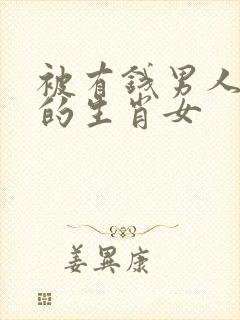 被有錢男人
的生肖女
姜異康